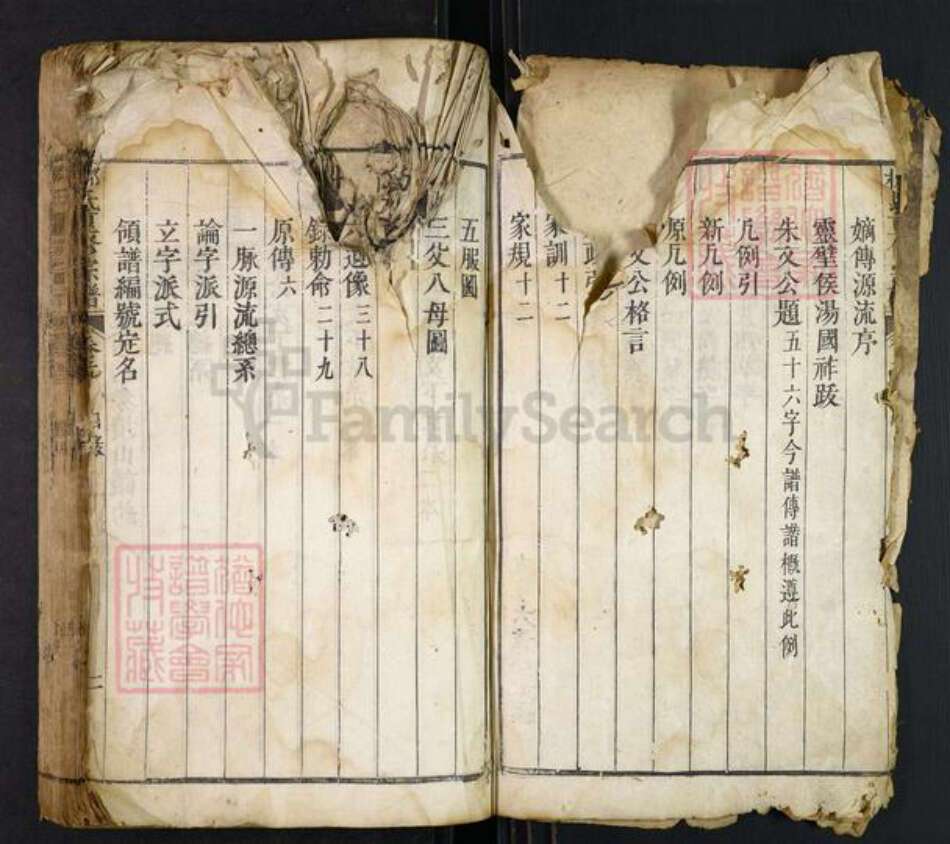 嫡傳源流序
靈壁侯湯國祚跋
朱文公題五十六字今譜傳譜概遵此例
凡例引
新凡例
原凡例
文公格言
政引
家訓十二
家規十二
五服圖
三父八母圖
遺像三十八
錄勅命二十九
原傳六
一脉源流總系
論字派引
立字派式
領譜編號定名
FamilySearch
譜學會
收藏